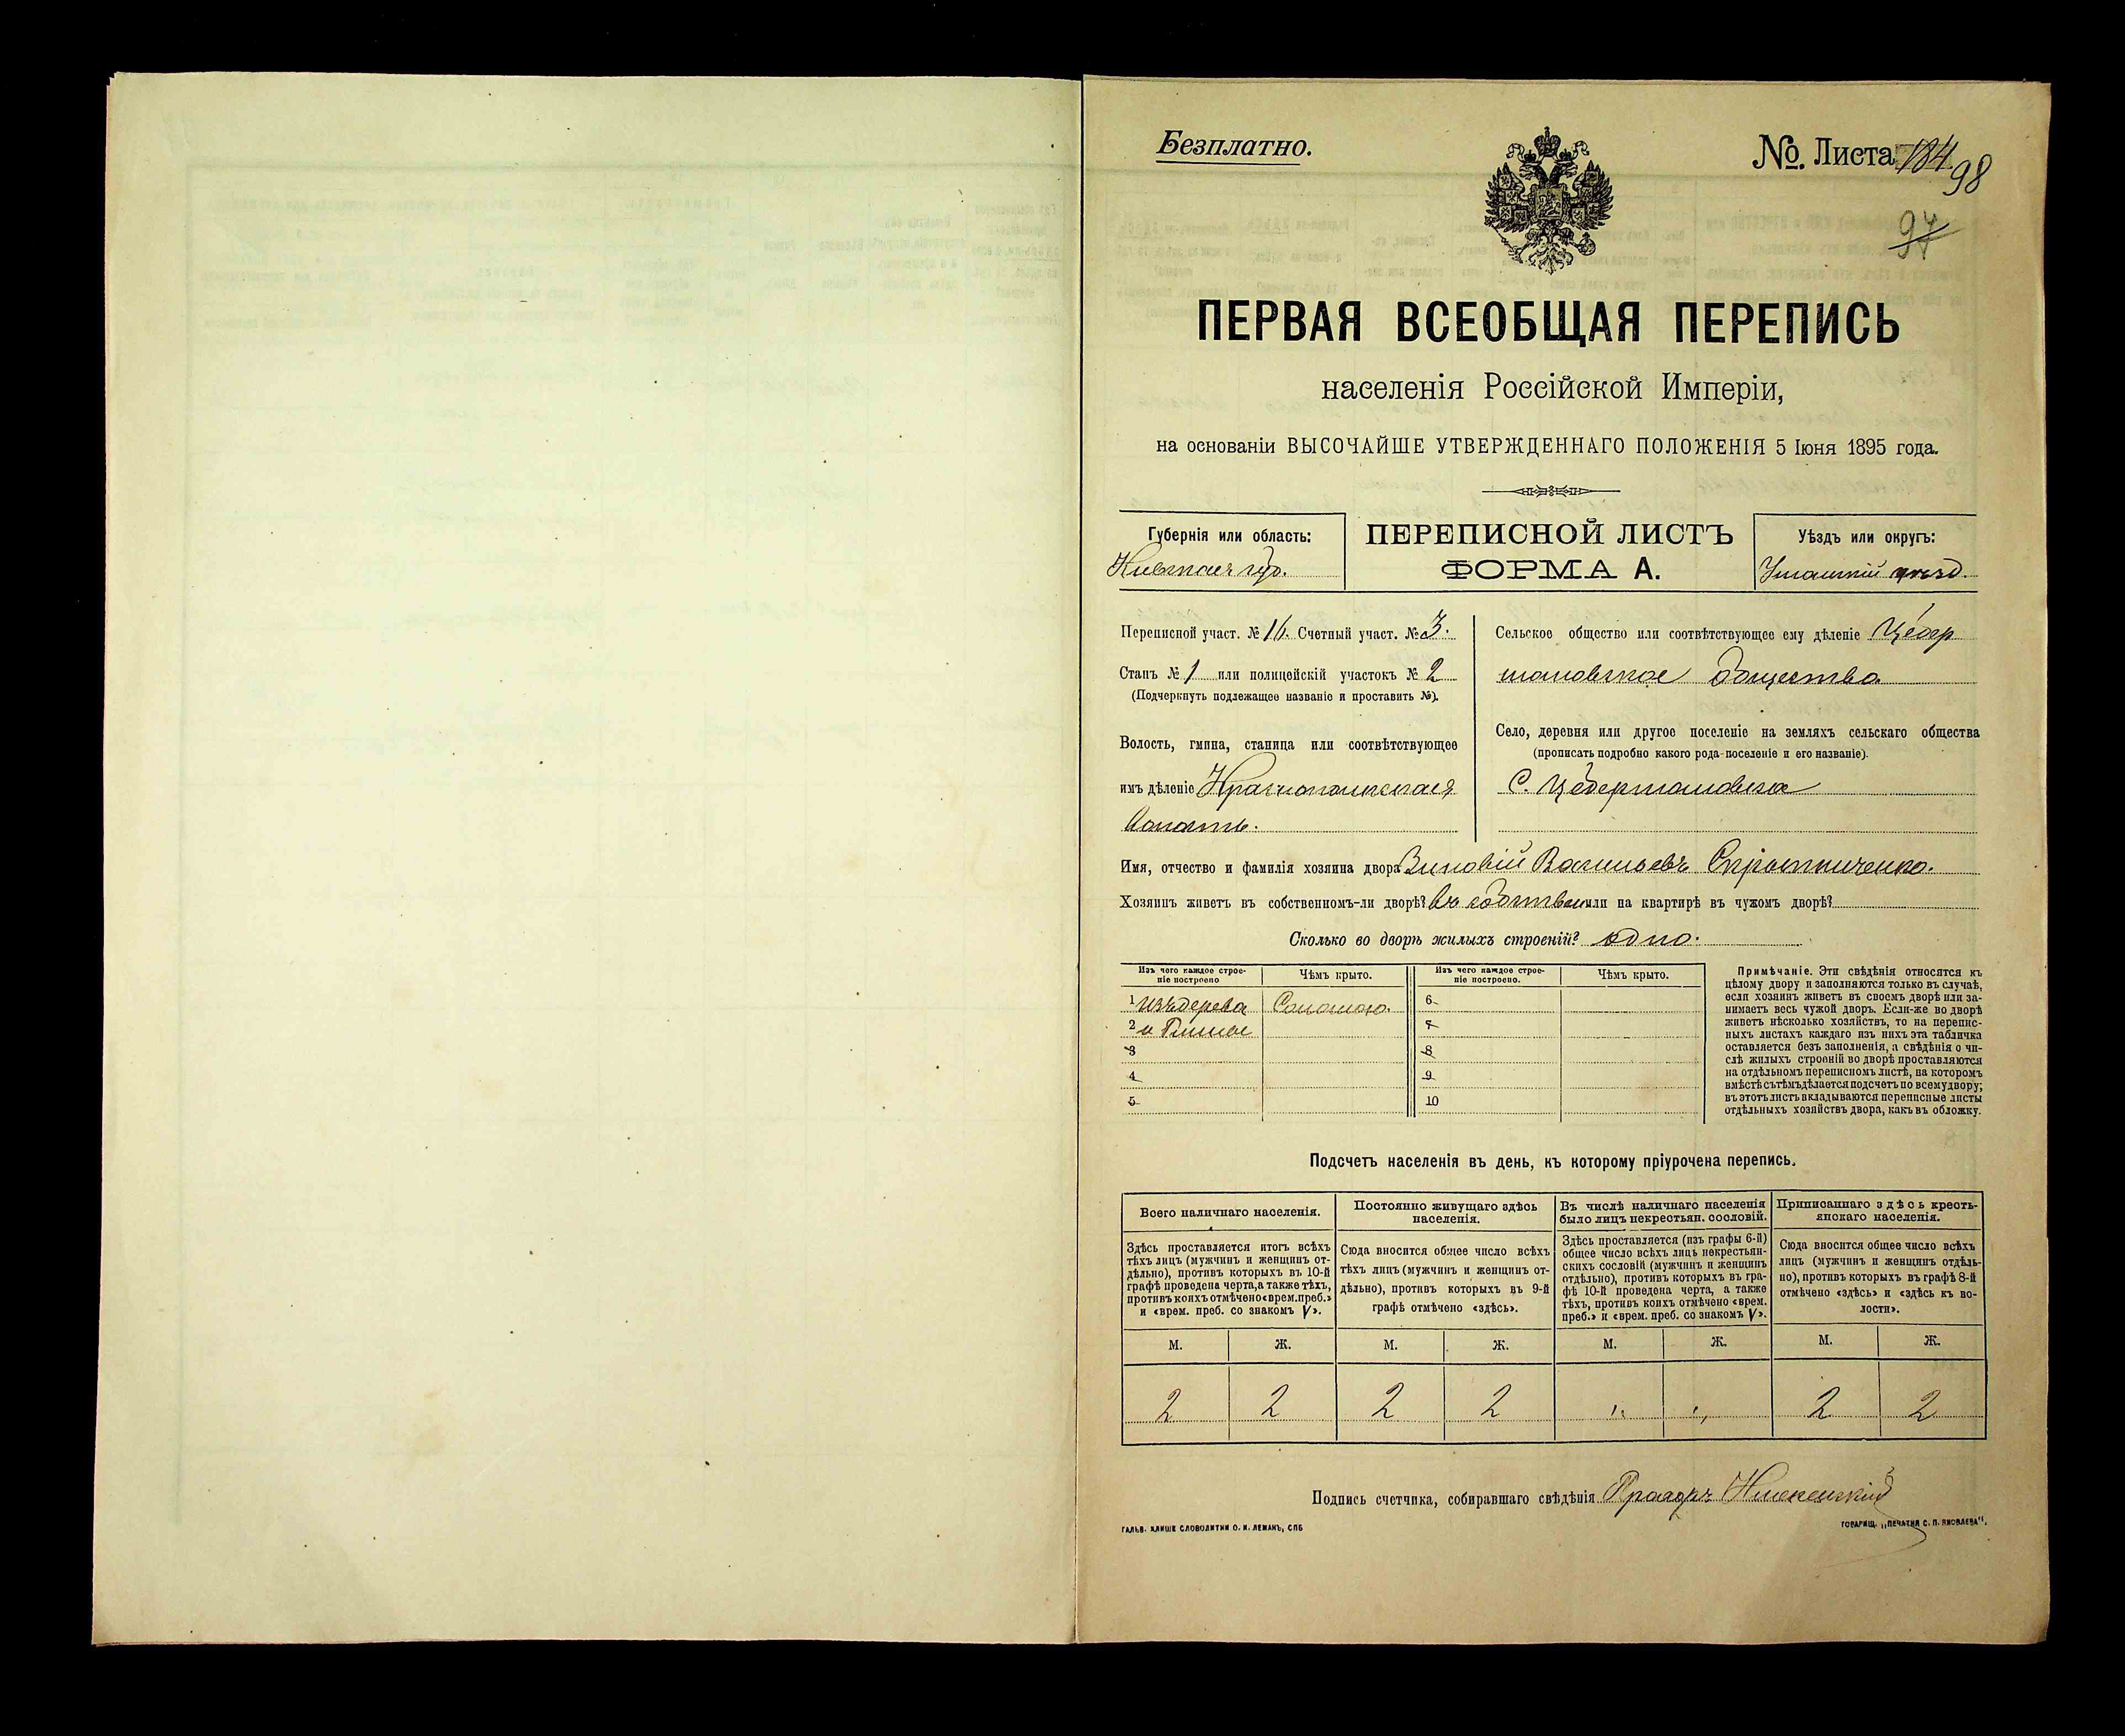 Безплатно.
№. Листа 184 98
97
ПЕРВАЯ ВСЕОБЩАЯ ПЕРЕПИСЬ
населенія Россійской Имперіи,
на основаніи ВЫСОЧАЙШЕ УТВЕРЖДЕННАГО ПОЛОЖЕНІЯ 5 Іюня 1895 года.
Губернія или область:
Кіевская губ.
ПЕРЕПИСНОЙ ЛИСТЪ
ФОРМА А.
Уѣздъ или округъ:
Уманскій уѣзд.
Переписной участ. № 16. Счетный участ. № 3.
Станъ № 1 или полицейскій участокъ № 2
(Подчеркнуть подлежащее названіе и проставить №).
Волость, гмина, станица или соотвѣтствующее
имъ дѣленіе
Волость.
Сельское общество или соотвѣтствующее ему дѣленіе
общества
Село, деревня или другое поселеніе на земляхъ сельскаго общества
(прописать подробно какого рода поселеніе и его названіе).
С.
Имя, отчество и фамилія хозяина двора Зиновій Васильевъ
Хозяинъ живетъ въ собственномъ-ли дворѣ? въ или на квартирѣ въ чужомъ дворѣ?
Сколько во дворѣ жилыхъ строеній? одно.
Изъ чего каждое строе-
ніе построено
Чѣмъ крыто.
Изъ чего каждое строе-
ніе построено.
Чѣмъ крыто.
1 изъ дерева Соломою. 6
2 и Глины 7
3 8
4 9
5 10
Примѣчаніе. Эти свѣдѣнія относятся къ
цѣлому двору и заполняются только въ случаѣ,
если хозяинъ живетъ въ своемъ дворѣ или за-
нимаетъ весь чужой дворъ. Если-же во дворѣ
живетъ нѣсколько хозяйствъ, то на перепис-
ныхъ листахъ каждаго изъ нихъ эта табличка
оставляется безъ заполненія, а свѣдѣнія о чи-
слѣ жилыхъ строеній во дворѣ проставляются
на отдѣльномъ переписномъ листѣ, на которомъ
вмѣстѣ съ тѣмъ дѣлается подсчетъ по всему двору;
въ этотъ листъ вкладываются переписные листы
отдѣльныхъ хозяйствъ двора, какъ въ обложку.
Подсчетъ населенія въ день, къ которому пріурочена перепись.
Всего наличнаго населенія.
Здѣсь проставляется итогъ всѣхъ
тѣхъ лицъ (мужчинъ и женщинъ от-
дѣльно), противъ которыхъ въ 10-й
графѣ проведена черта, а также тѣхъ,
противъ коихъ отмѣчено «врем. преб.»
и «врем. преб. со знакомъ V».
Постоянно живущаго здѣсь
населенія.
Сюда вносится общее число всѣхъ
тѣхъ лицъ (мужчинъ и женщинъ от-
дѣльно), противъ которыхъ въ 9-й
графѣ отмѣчено «здѣсь».
Въ числѣ наличнаго населенія
было лицъ некрестьян. сословій.
Здѣсь проставляется (изъ графы 6-й)
общее число всѣхъ лицъ некрестьян-
скихъ сословій (мужчинъ и женщинъ
отдѣльно), противъ которыхъ въ гра-
фѣ 10-й проведена черта, а также
тѣхъ, противъ коихъ отмѣчено «врем.
преб.» и «врем. преб. со знакомъ V».
Приписаннаго здѣсь кресть-
янскаго населенія.
Сюда вносится общее число всѣхъ
лицъ (мужчинъ и женщинъ отдѣль-
но), противъ которыхъ въ графѣ 8-й
отмѣчено «здѣсь» и «здѣсь къ во-
лости».
М. Ж. М. Ж. М. Ж. М. Ж.
2 2 2 2 " " 2 2
Подпись счетчика, собиравшаго свѣдѣнія
ГАЛЬВ. КЛИШЕ СЛОВОЛИТНИ О. И. ЛЕМАНЪ, СПБ
ТОВАРИЩ. „ПЕЧАТНЯ С. П. ЯКОВЛЕВА".